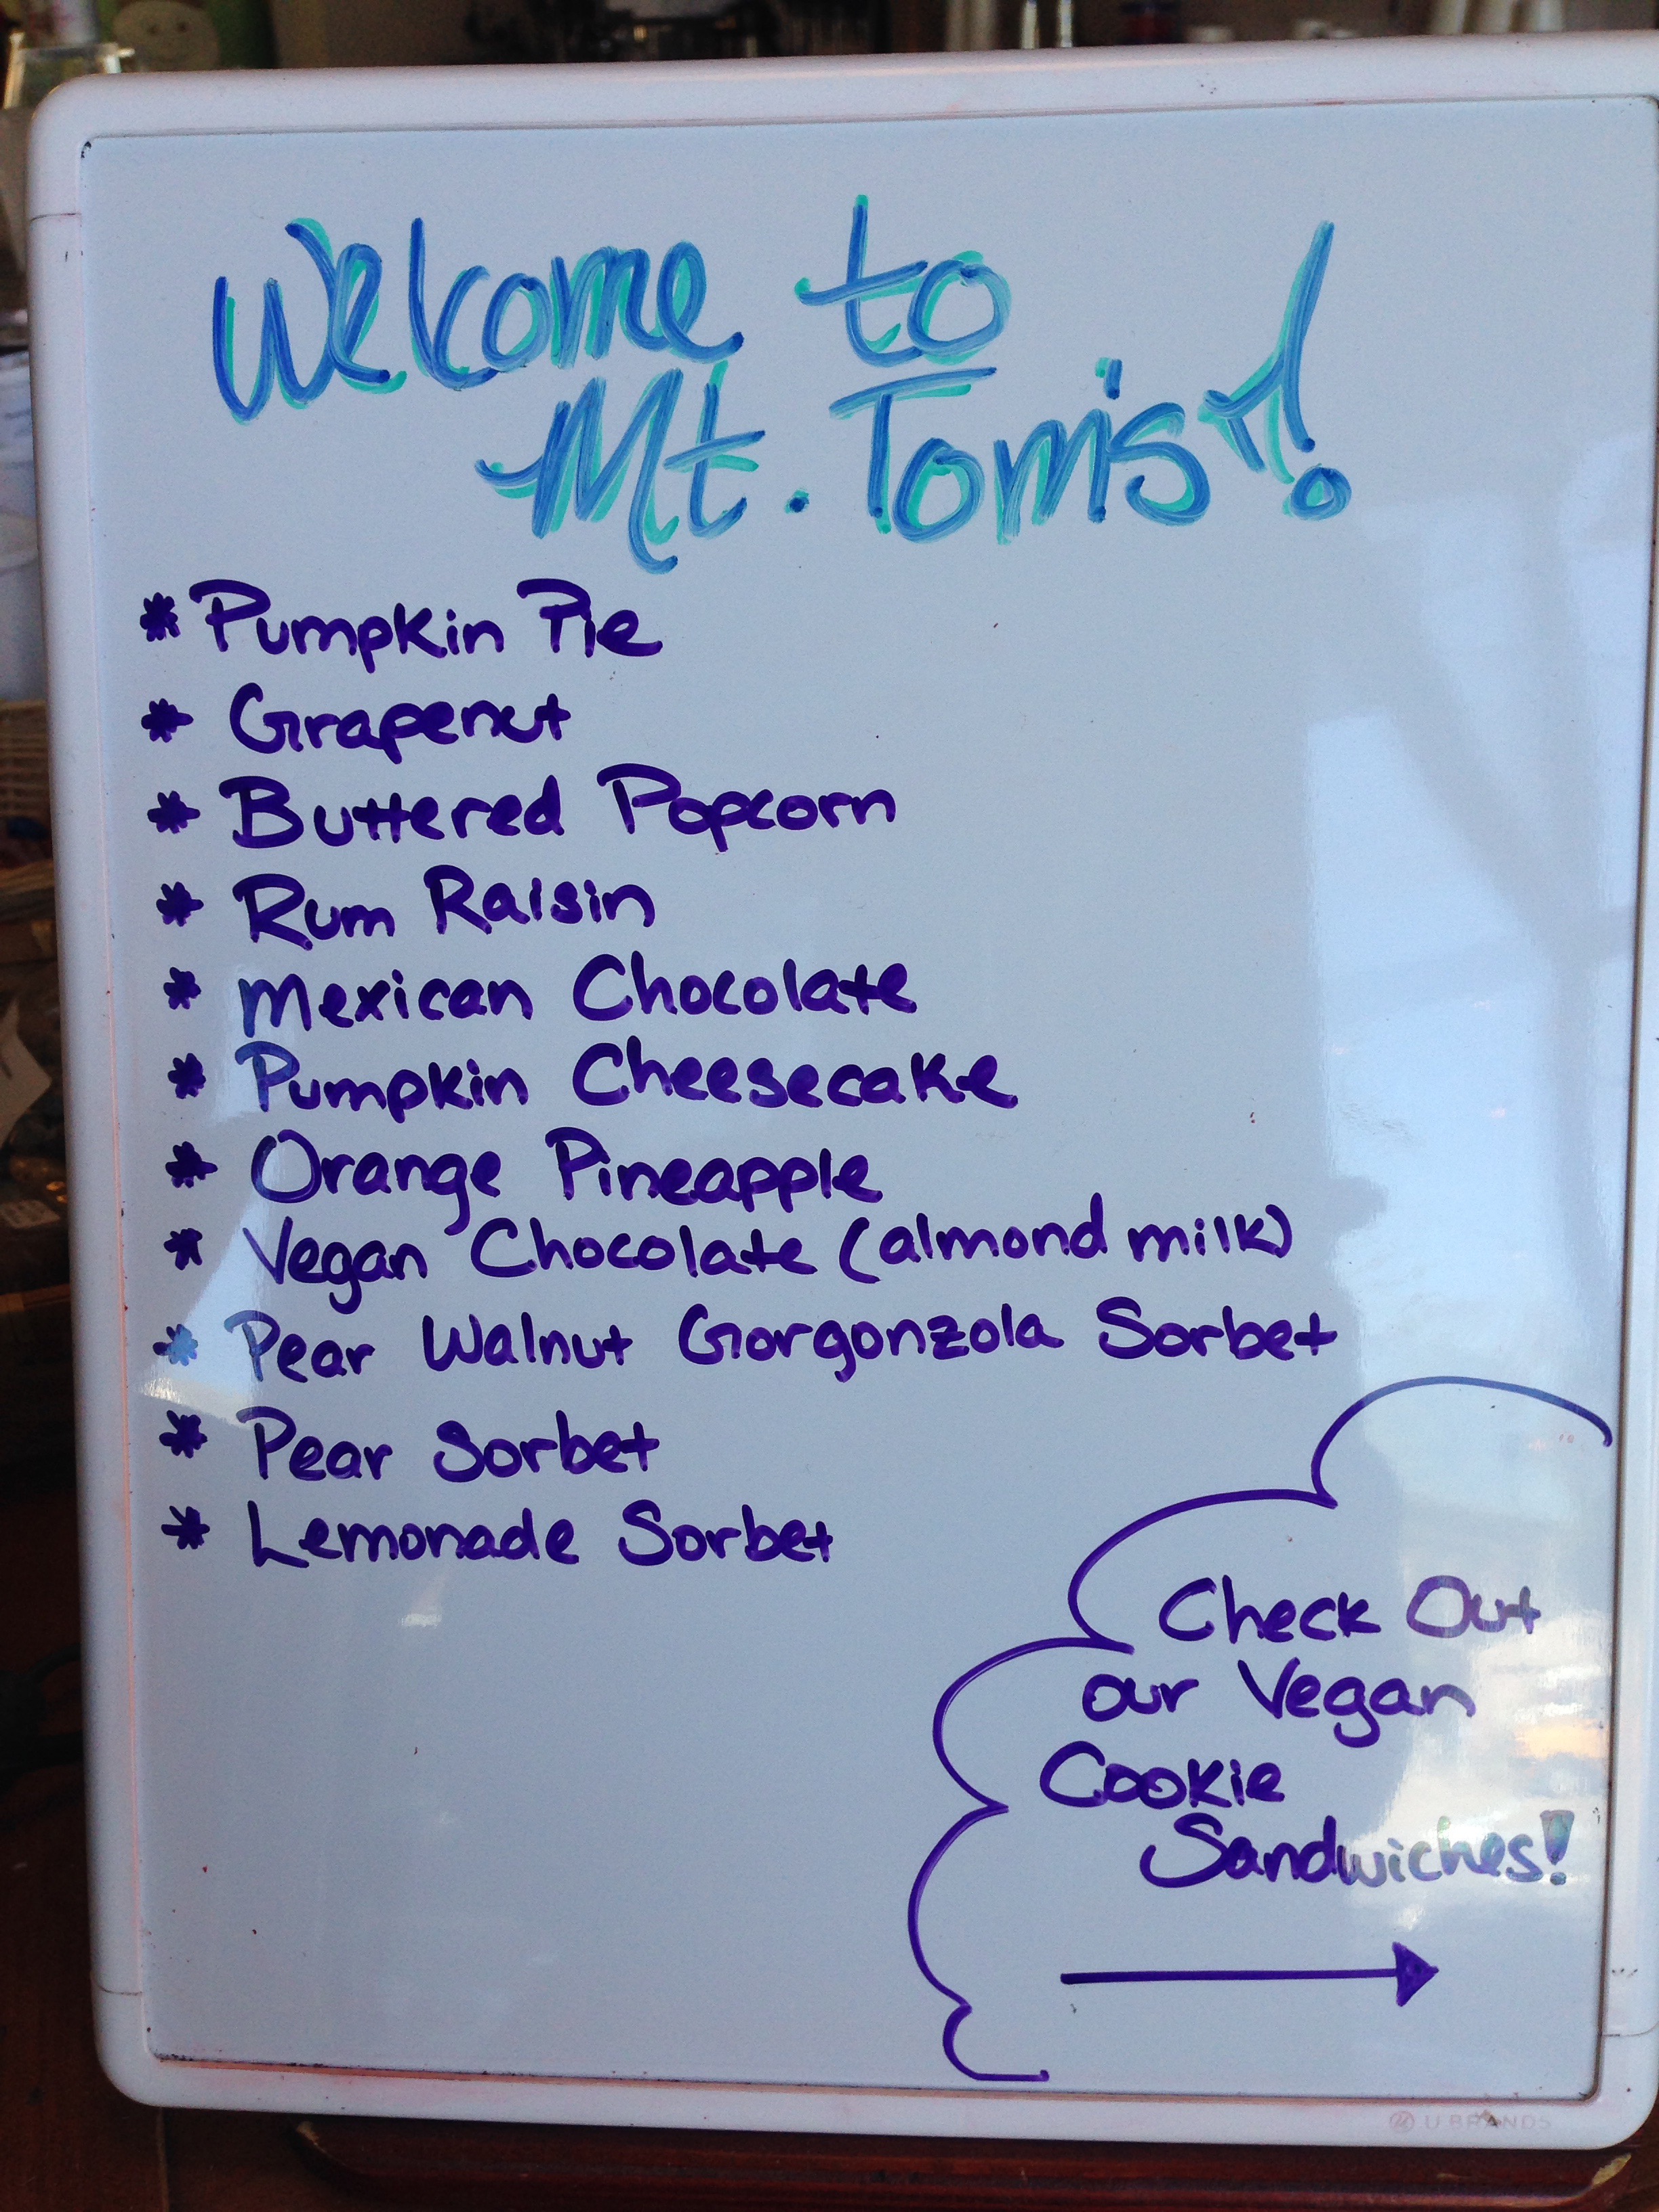 Welcome to
Mt. Tom's!
* Pumpkin Pie
* Grapenut
* Buttered Popcorn
* Rum Raisin
* Mexican Chocolate
* Pumpkin Cheesecake
* Orange Pineapple
* Vegan Chocolate (almond milk)
* Pear Walnut Gorgonzola Sorbet
* Pear Sorbet
* Lemonade Sorbet
Check Out
our Vegan
Cookie
Sandwiches!
U BRANDS